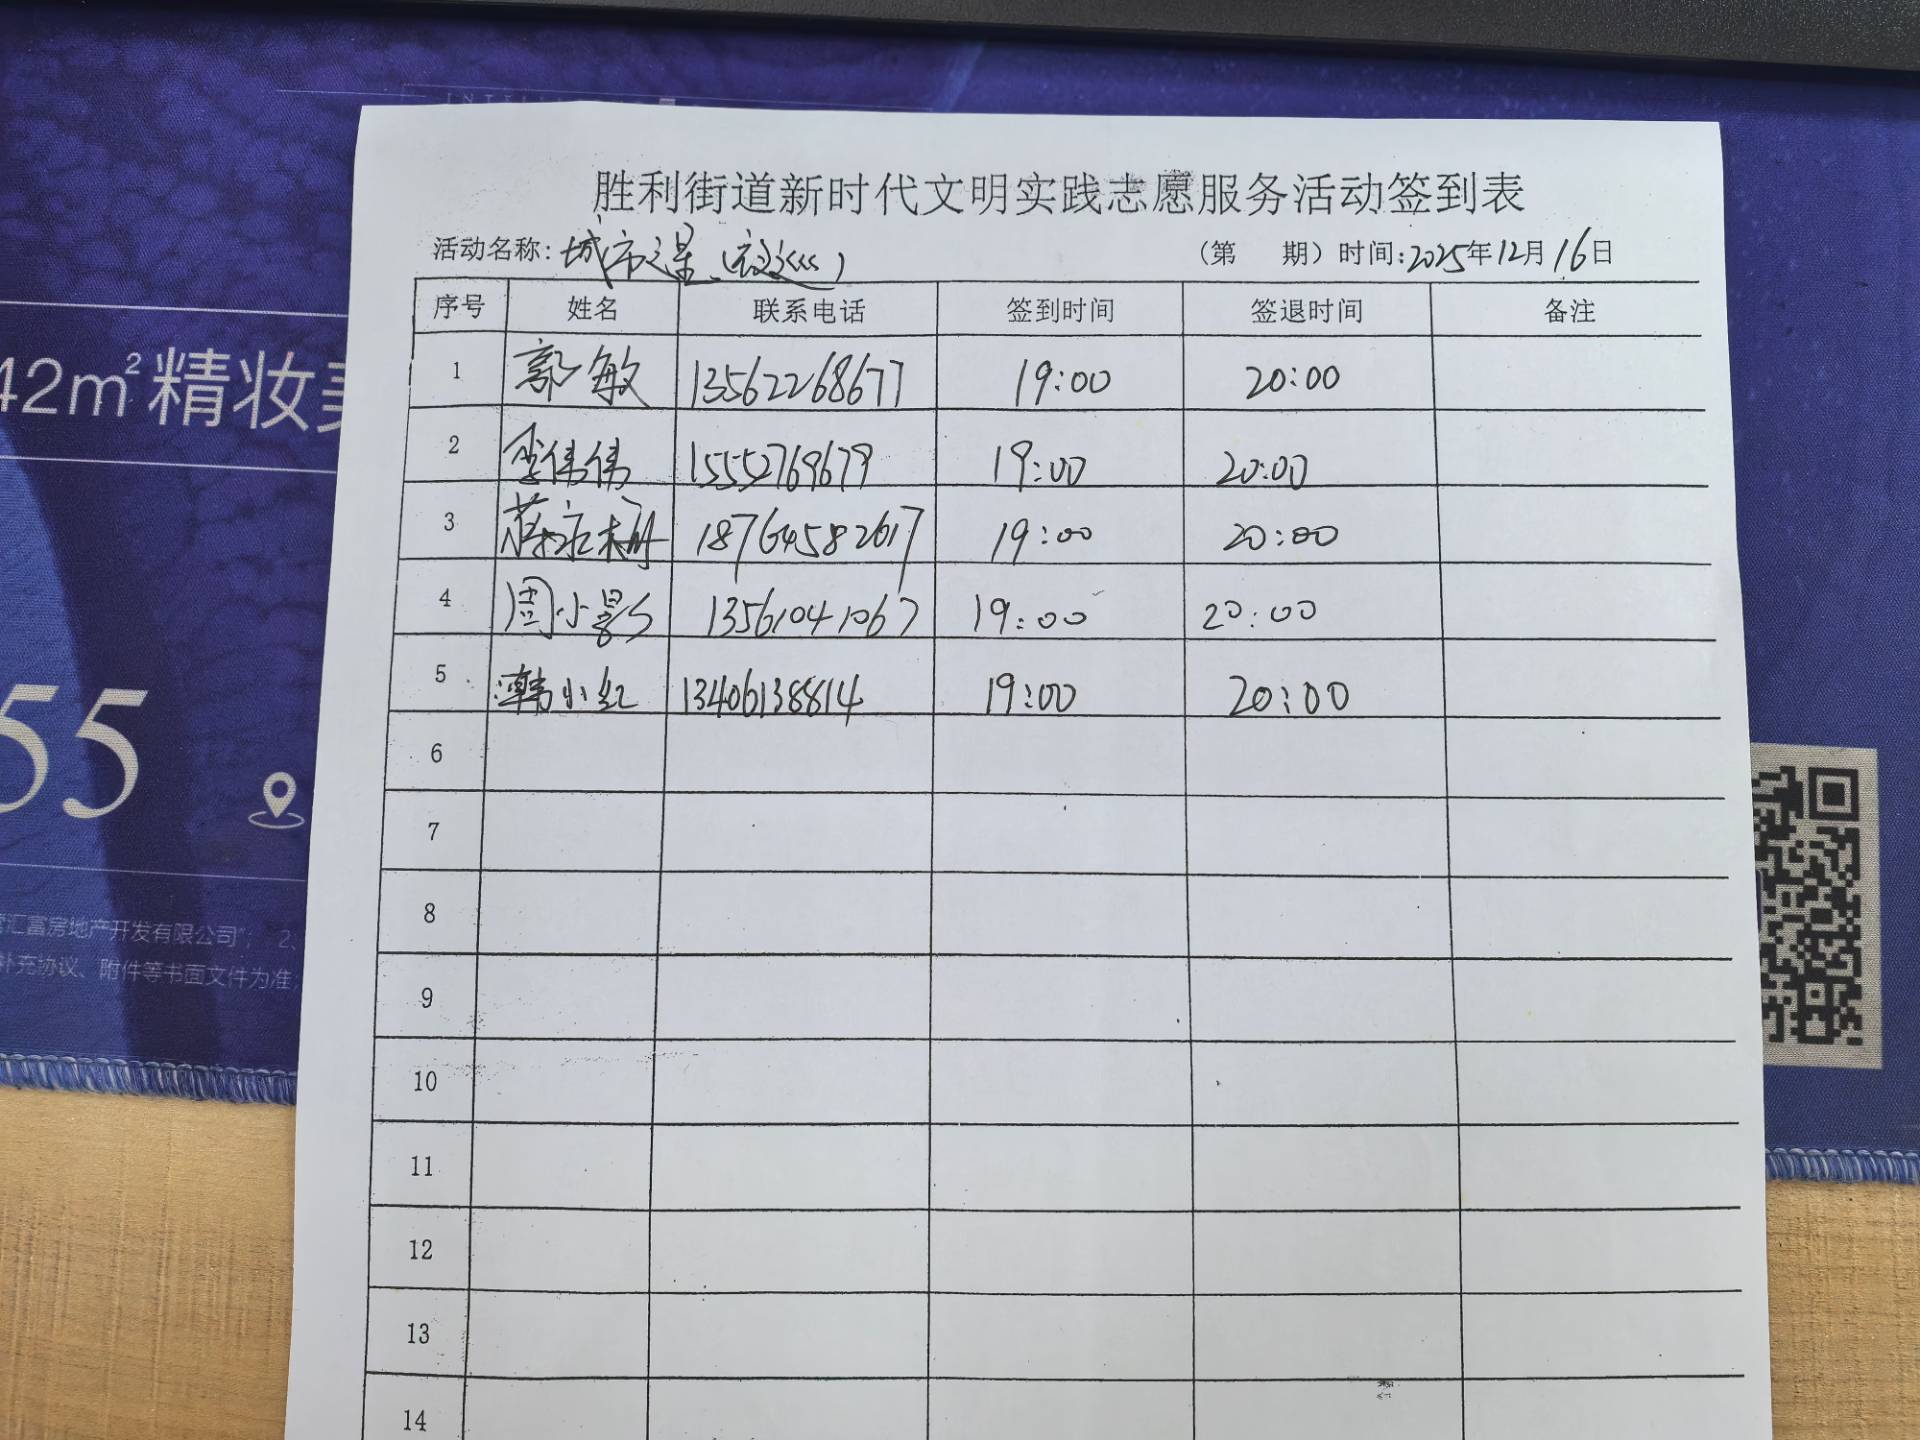 胜利街道新时代文明实践志愿服务活动签到表
活动名称: 城市之星 (第 期) 时间:2025年12月16日
序号 姓名 联系电话 签到时间 签退时间 备注
1 郭敏 13562268677 19:00 20:00
2 李伟伟 15552769679 19:00 20:00
3 蒋永 18764582617 19:00 20:00
4 周小影 13561041067 19:00 20:00
5 韩小红 13406138814 19:00 20:00
6
7
8
9
10
11
12
13
14
42m²精妆
55
汇富房地产开发有限公司"; 2、
补充协议、附件等书面文件为准;